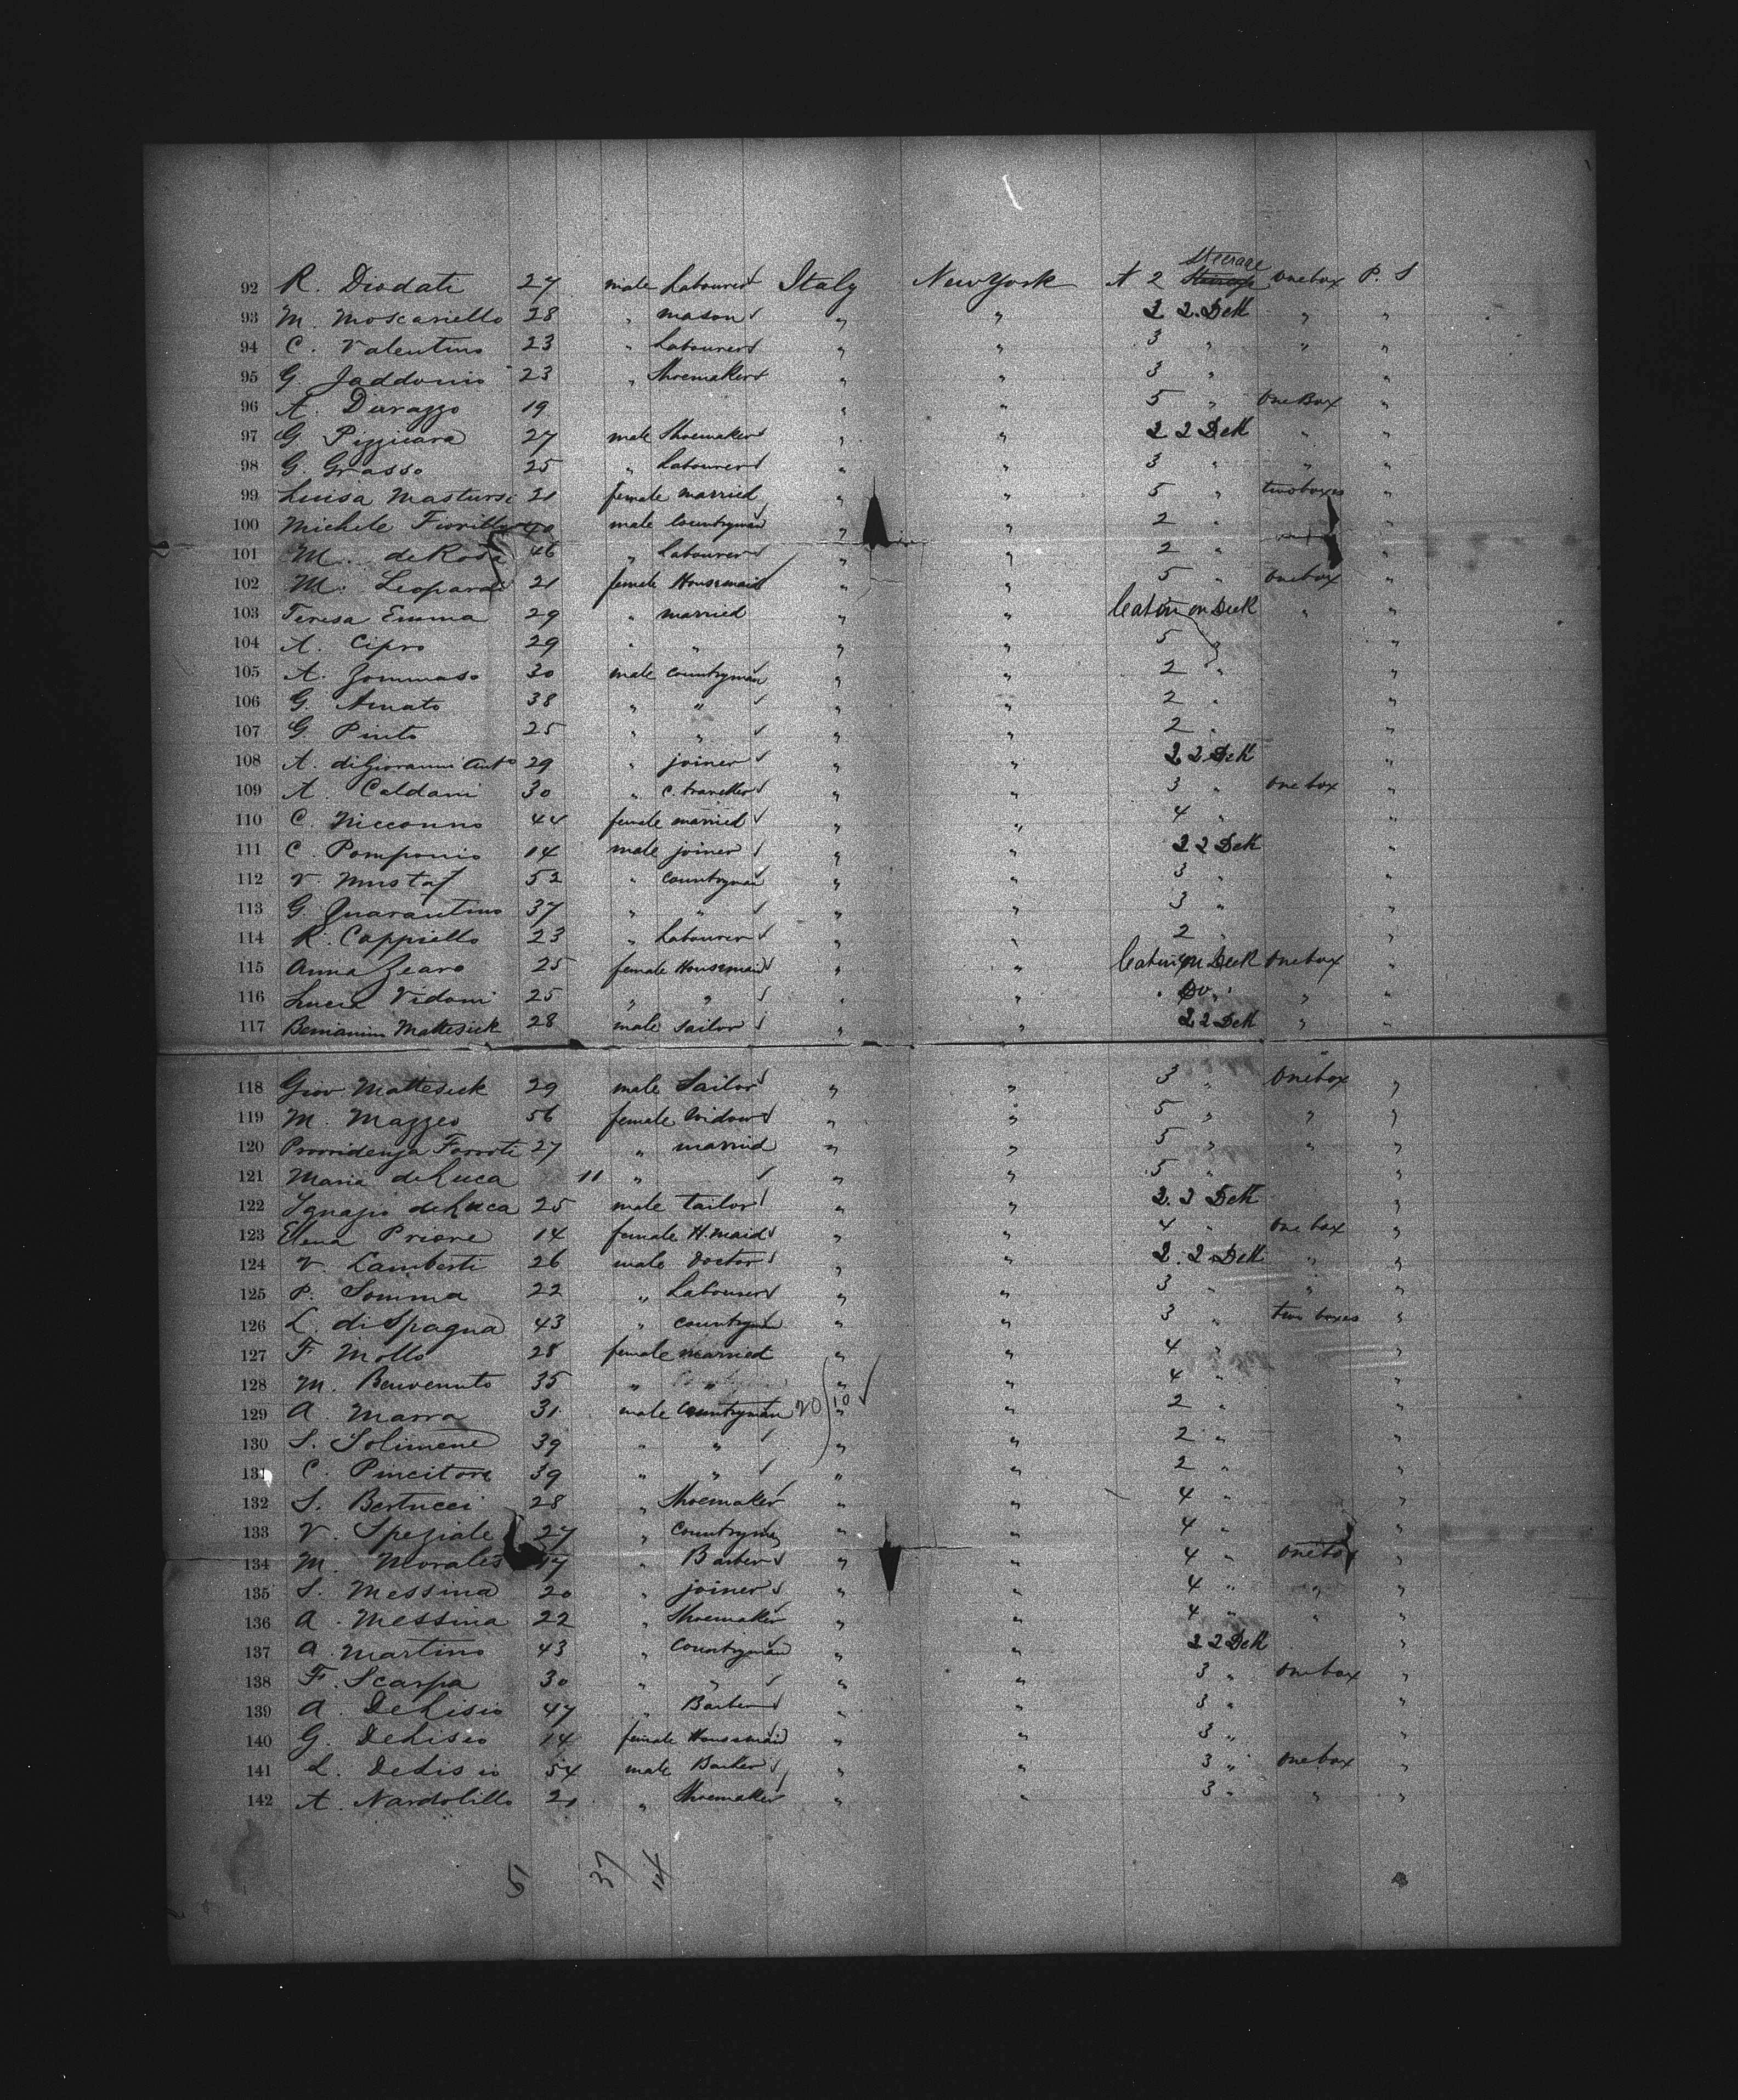 92 R. Diodati 27 male Labourer Italy New York A 2 Steerage one box P. S
93 M. Moscariello 28 " mason " " 2 2. Deck " "
94 C. Valentino 23 " Labourer " " 3 " " "
95 G Jaddonio 23 " Shoemaker " " 3 " "
96 A. Durazzo 19 " " 5 " One Box "
97 G Pizzicara 27 male Shoemaker " " 2 2 Deck " "
98 G. Grasso 25 " Labourer " " 3 " " "
99 Luisa Mastursi 21 female married " " 5 " two boxes "
100 Michele Fiorillo 40 male Countryman " " 2 " "
101 M. de Rosa 46 " Labourer " " 2 " "
102 M. Leopardi 21 female Housemaid " " 5 " one box "
103 Teresa Emma 29 " married " " Cabin on Deck " "
104 A. Cipro 29 " " " " 5 " "
105 A. Zommaso 30 male countryman " " 2 " "
106 G. Amato 38 " " " " 2 " "
107 G Pinto 25 " " " " 2 " "
108 A. di Giovanni Anto 29 " joiner " " 2 2 Deck "
109 A. Caldani 30 " C. traveller " " 3 " one box "
110 C. Nicconno 44 female married " " 4 " "
111 C. Pomponio 14 male joiner " " 2 2 Deck "
112 V. Mustaf 52 " Countryman " " 3 " "
113 G. Quarantino 37 " " " " 3 " "
114 R. Cappiello 23 " Labourer " " 2 " "
115 Anna Zearo 25 female Housemaid " " Cabin on Deck one box "
116 Lucia Vidoni 25 " " " " " Do. " " "
117 Beniamin Mattesick 28 male sailor " " 2 2 Deck " "
118 Giov Mattesick 29 male Sailor " " 3 " One box "
119 M. Mazzeo 56 female widow " " 5 " " "
120 Provvidenza Forroti 27 " married " " 5 " " "
121 Maria de Luca 11 " " " 5 " "
122 Ignazio de Luca 25 male tailor " " 2. 2 Deck "
123 Elena Priore 14 female H. maid " " 4 " One box "
124 V. Lamberti 26 male Doctor " " 2. 2. Deck " "
125 P. Somma 22 " Labourer " " 3 " " "
126 L. di Spagna 43 " country " " 3 " two boxes "
127 F. Mollo 28 female married " " 4 " "
128 M. Benvenuto 35 " " " " 4 " "
129 A. Marra 31 male Countryman 20 10 " " 2 "
130 S. Solimene 39 " " " " 2 " "
131 C. Pincitore 39 " " " " 2 "
132 S. Bertucci 28 " Shoemaker " " 4 " "
133 V. Speziale 27 " Countryman " " 4 " "
134 M. Morales 17 " Barber " " 4 " one box "
135 S. Messina 20 " joiner " " 4 " " "
136 A. Messina 22 " Shoemaker " " 4 " " "
137 A. Martino 43 " Countryman " " 2 2 Deck "
138 F. Scarpa 30 " " " " 3 " one box "
139 A. DeLisio 47 " Barber " " 3 " "
140 G. DeLisio 14 female Housemaid " " 3 " "
141 L. DeLisio 54 male Barber " " 3 " one box "
142 A. Nardolillo 21 " Shoemaker " " 3 " " "
51 37 14